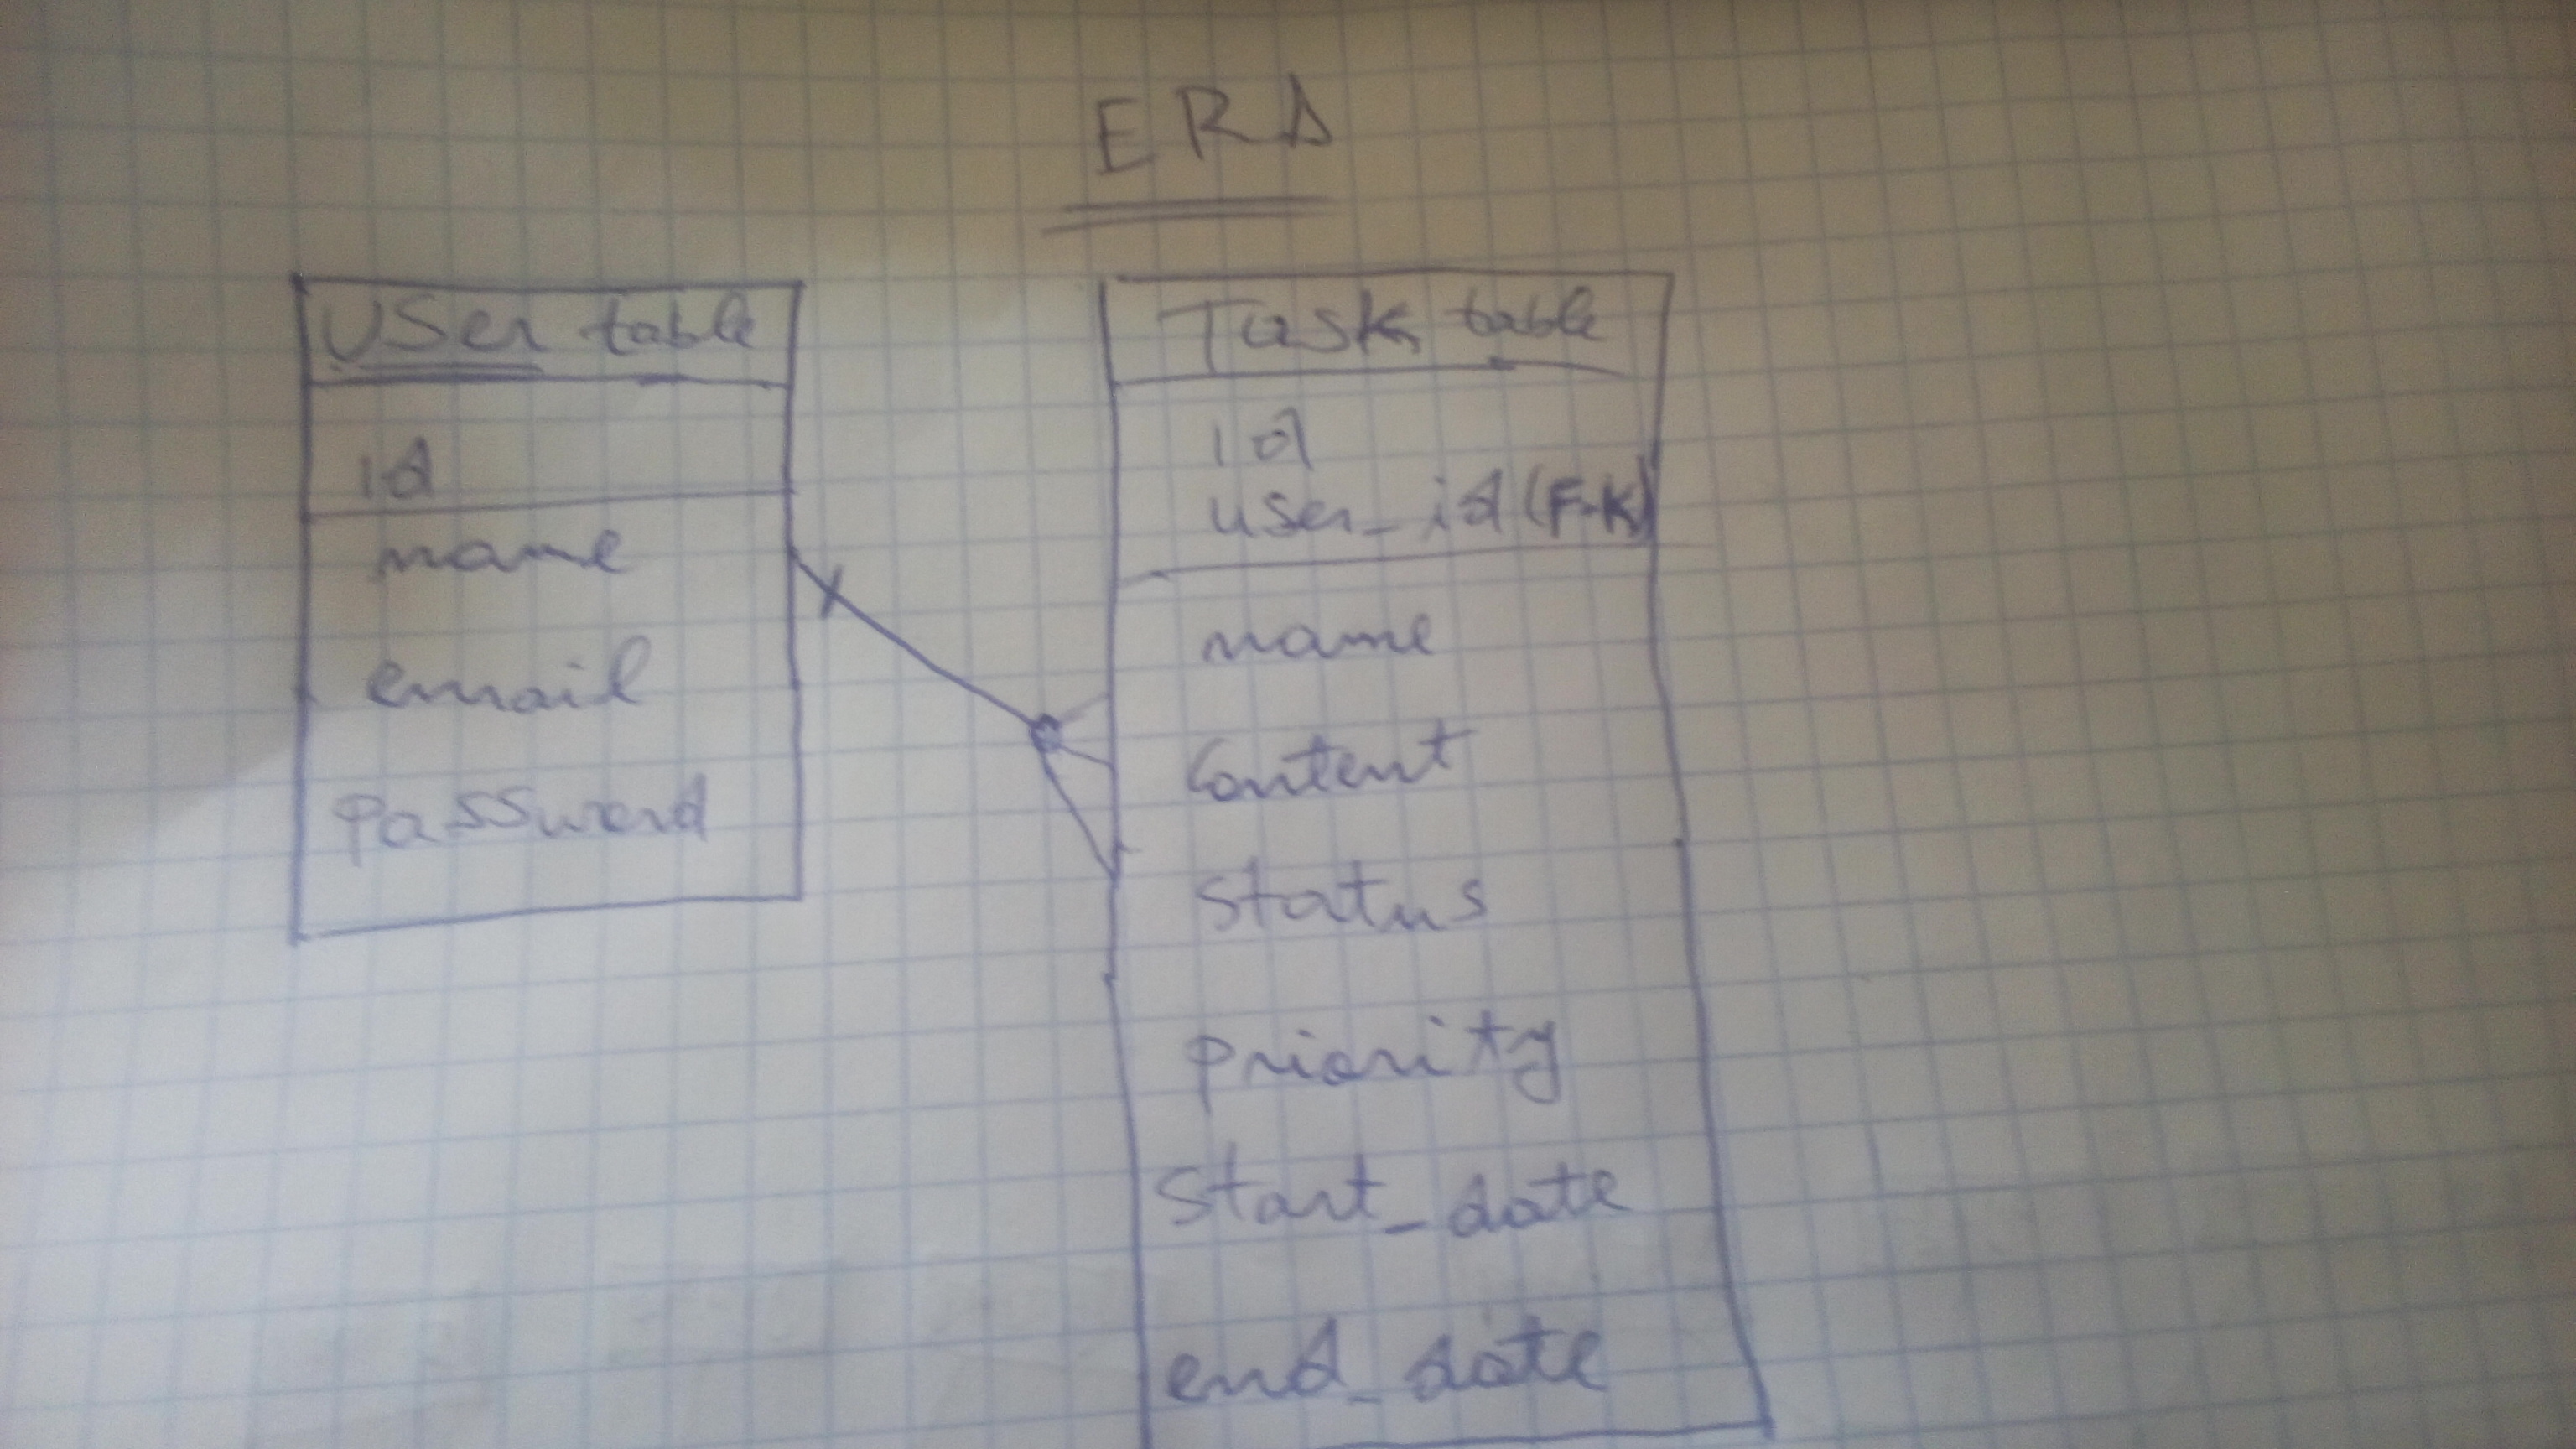 ERD
User table
id
name
email
password
Task table
id
user_id (F.K)
name
Content
status
priority
start_date
end_date